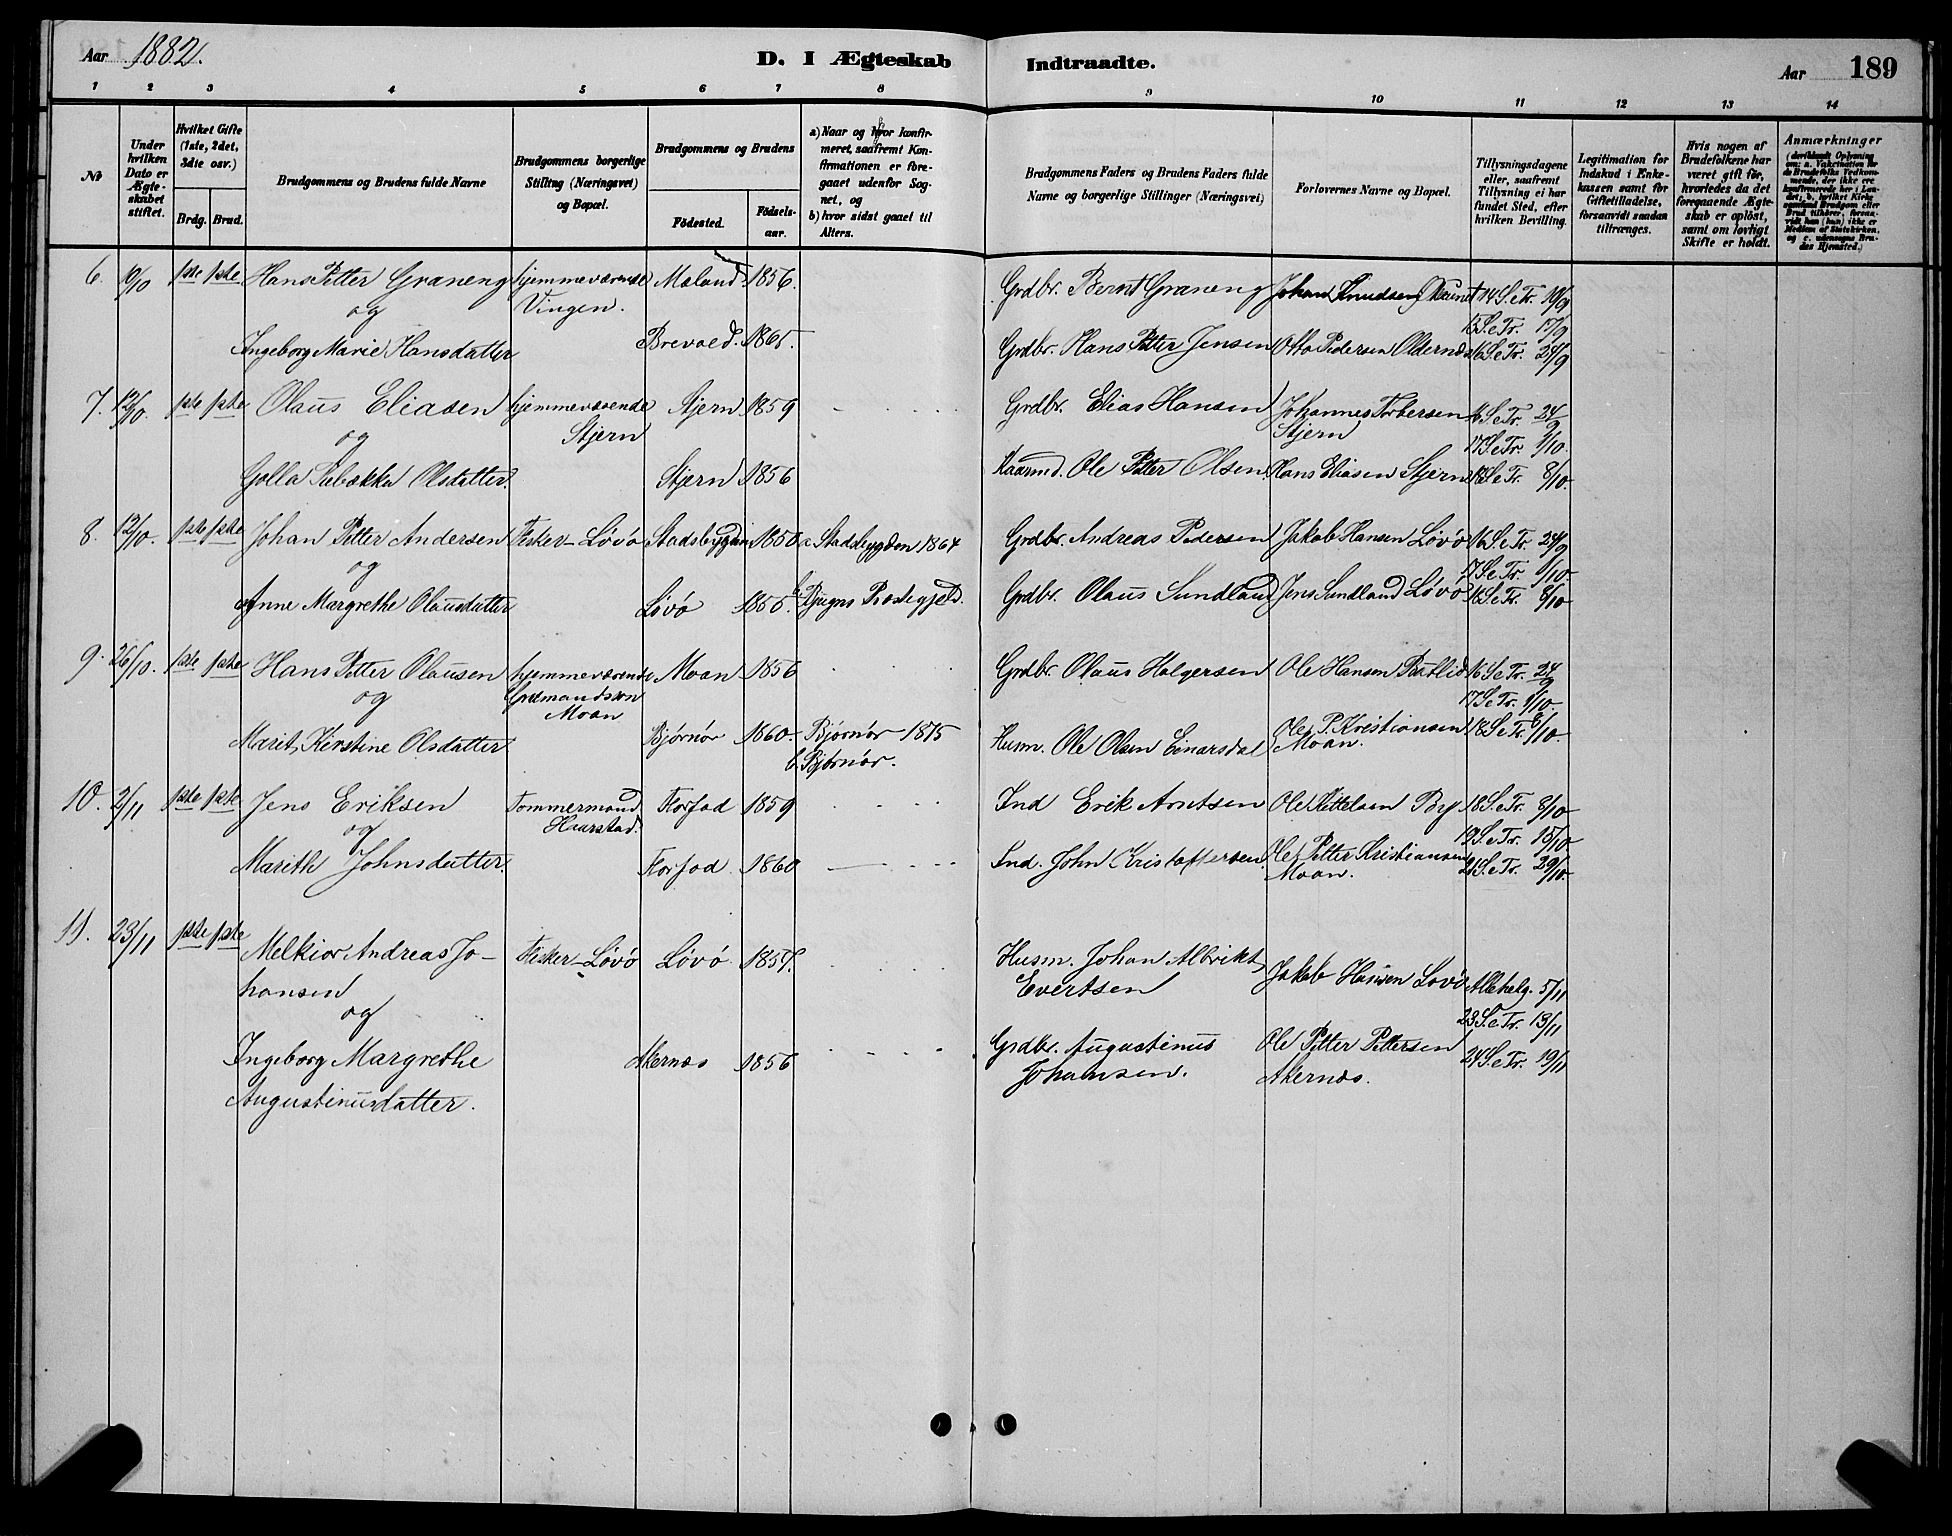 Aar 1882.
D. I Ægteskab
Indtraadte.
Aar 189
1 2 3 4 5 6 7 8 9 10 11 12 13 14
No
Under hvilken Dato er Ægteskabet stiftet.
Hvilket Gifte (1ste, 2det, 3die osv.)
Brdg. Brud.
Brudgommens og Brudens fulde Navne
Brudgommens borgerlige Stilling (Næringsvei) og Bopæl.
Brudgommens og Brudens
Födested. Födselsaar.
a) Naar og hvor konfirmeret, saafremt Konfirmationen er foregaaet udenfor Sognet, og
b) hvor sidst gaaet til Alters.
Brudgommens Faders og Brudens Faders fulde Navne og borgerlige Stillinger (Næringsvei)
Forlovernes Navne og Bopæl.
Tillysningsdagene eller, saafremt Tillysning ei har fundet Sted, efter hvilken Bevilling.
Legitimation for Indskud i Enkekassen samt for Giftetilladelse, forsaavidt saadan tiltrænges.
Hvis nogen af Brudefolkene har været gift før, hvorledes da det foregaaende Ægteskab er oplöst, samt om lovligt Skifte er holdt.
Anmærkninger
6. 10/10 1ste 1ste Hans Petter Graneng hjemmeværende Moland 1856. Grdbr. Bernt Graneng Johan Knudsen 14 S.e.Tr. 10/9
og Vingen. 15 S.e.Tr. 17/9
Ingeborg Marie Hansdatter Brevold. 1865. Grdbr. Hans Petter Jensen Otto Pedersen Oldernes 16 S.e.Tr. 24/9
7. 12/10. 1ste 1ste Olaus Eliasen hjemmeværende Stjern 1859 Grdbr. Elias Hansen Johannes Torbersen 16 S.e.Tr. 24/9
og Stjern Stjern 17 S.e.Tr. 1/10.
Golla Rebække Olsdatter. Stjern 1856 Kaarmd. Ole Petter Olsen. Hans Eliasen Stjern 18 S.e.Tr. 8/10.
8. 12/10. 1ste 1ste Johan Petter Andersen Fisker - Lövö Stadsbygden 1850 a Stadsbygden 1864 Grdbr. Andreas Pedersen Jakob Hansen Lövö 16 S.e.Tr. 24/9
og 17 S.e.Tr. 1/10.
Anne Margrethe Olausdatter Lövö 1855. b Bjugns Prestegjeld. Grdbr. Olaus Sundland Jens Sundland Lövö 18 S.e.Tr. 8/10
9. 26/10. 1ste 1ste Hans Petter Olausen hjemmeværende Moan 1856 Grdbr. Olaus Holgersen Ole Hansen Bratlid 16 S.e.Tr. 24/9
og Grdmandssön 17 S.e.Tr. 1/10.
Moan
Marit Kerstine Olsdatter Björnör 1860. Björnör 1875 Husm. Ole Olsen Einarsdal Ole P. Kristiansen 18 S.e.Tr. 8/10.
b. Björnör. Moan.
10. 2/11 1ste 1ste Jens Eriksen Tømmermand Forfod 1859 Ind Erik Arntsen Ole Kittelsen By 18 S.e.Tr. 8/10
og Haarstad. 19 S.e.Tr. 15/10
Marith Johnsdatter. Forfod 1860 Ind. John Kristoffersen. Ole Petter Kristiansen 21 S.e.Tr. 29/10.
Moan.
11. 23/11 1ste 1ste Melkior Andreas Jo- Fisker - Lövö Lövö 1857. Husm. Johan Albrikt Jakob Hansen Lövö Allehelg. 5/11
hansen Evertsen
og 23 S.e.Tr. 13/11
Ingeborg Margrethe Akernes 1856 Grdbr. Augustinus Ole Petter Pettersen 24 S.e.Tr. 19/11
Augustinusdatter. Johansen. Akernes.